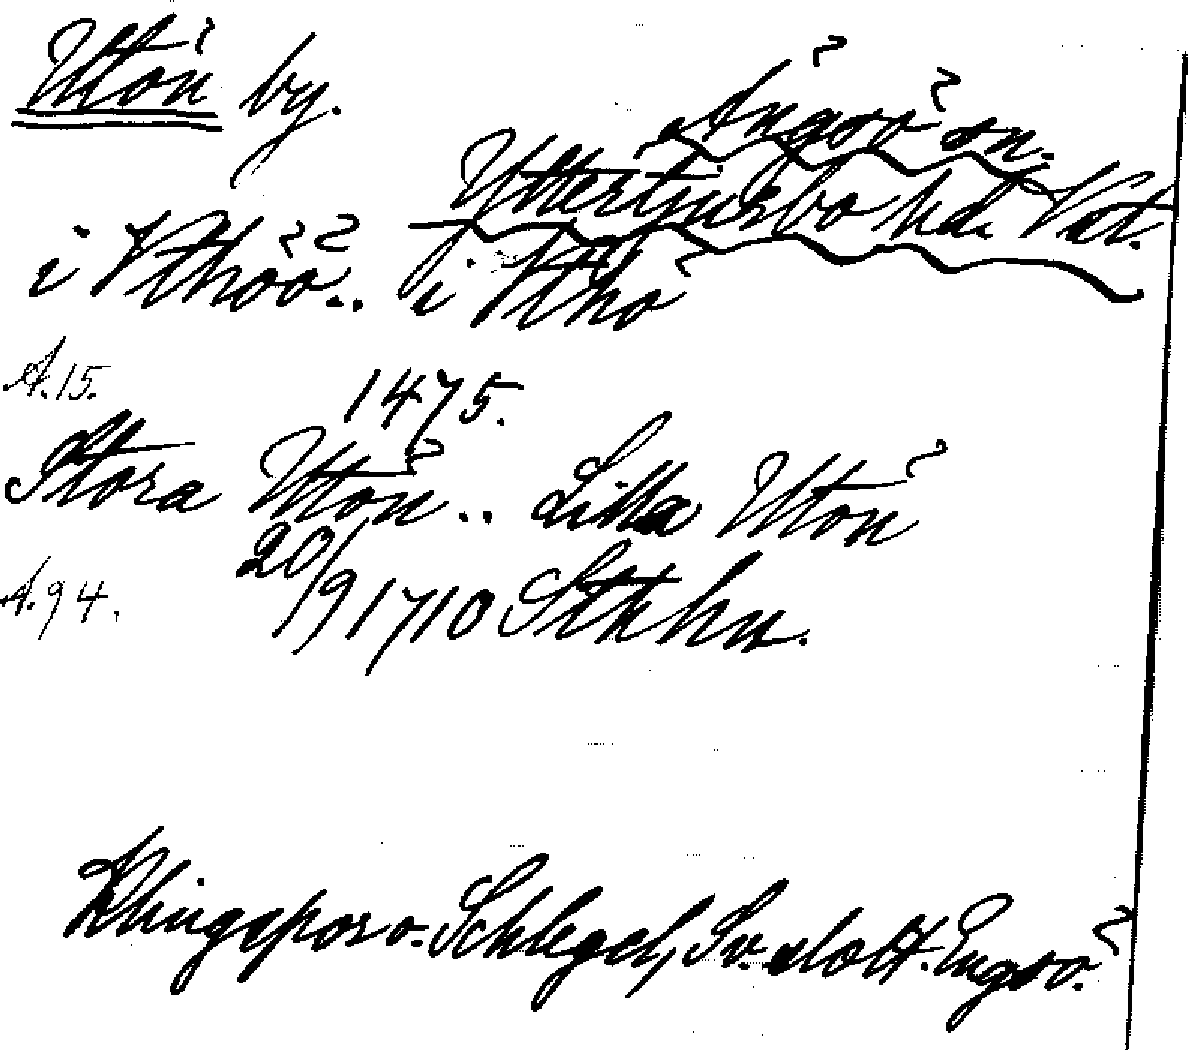 Utön by.
Ängsö sn.
Yttertjurbo hd. Vst.
i Vthöö.. i Vthö
A.15.
1475.
Stora Utön.. Lilla Utön
A.94.
20/9 1710 Sthhn.
Klingspor o. Schlegel, Sv. slott. Engsö.